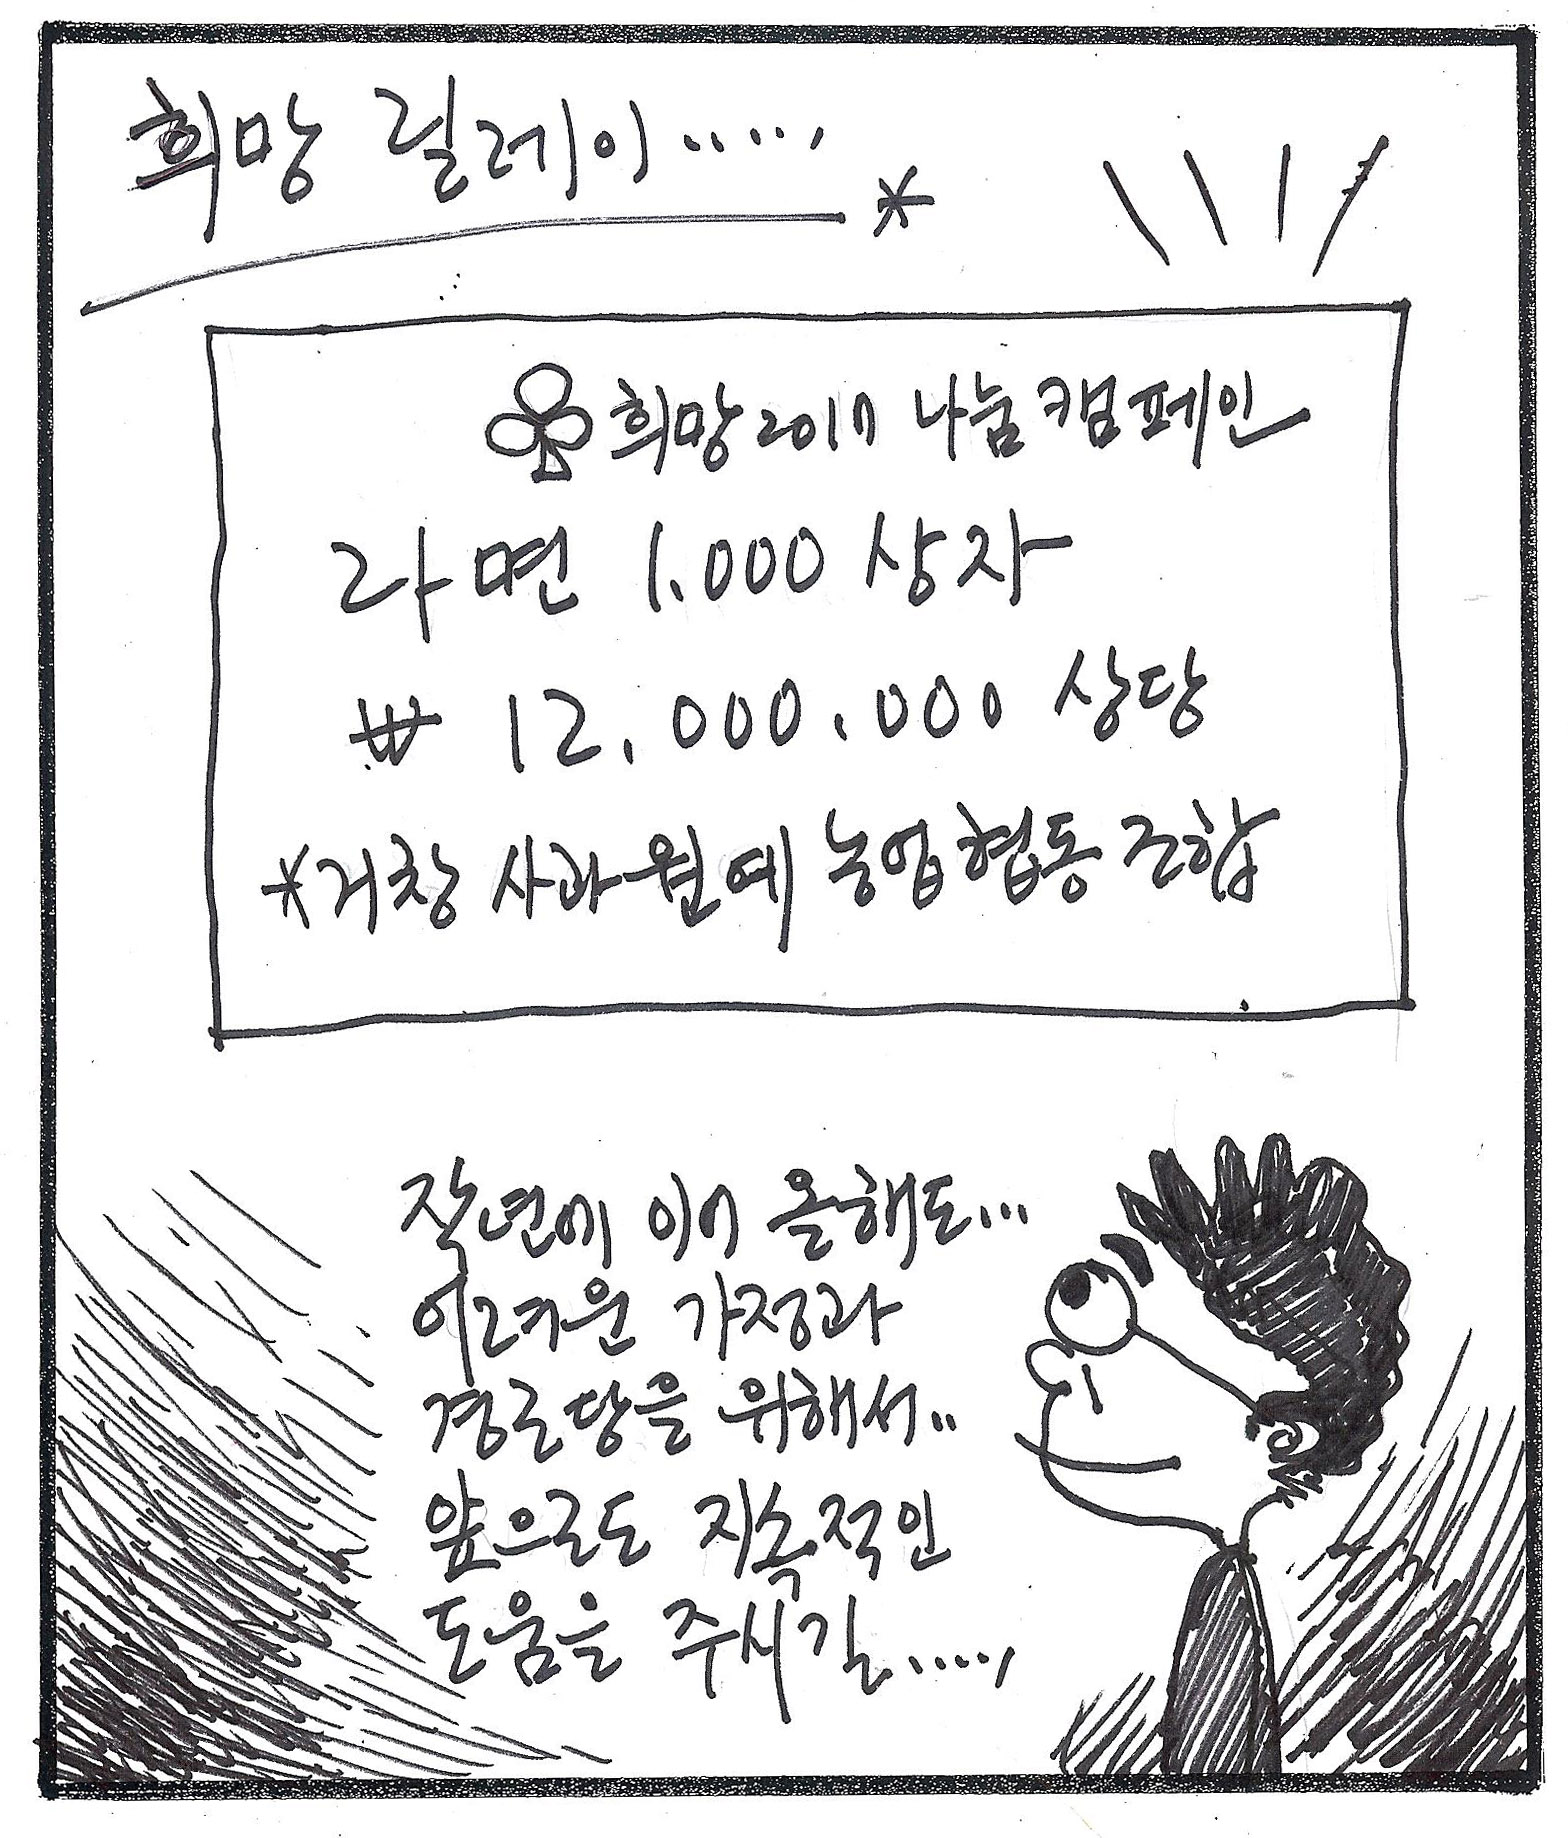 희망 릴레이.....,
*
희망2017 나눔캠페인
라면 1.000 상자
₩ 12.000.000 상당
*거창 사과원예 농업협동조합
작년에 이어 올해도...
어려운 가정과
경로당을 위해서..
앞으로도 지속적인
도움을 주시길.....,